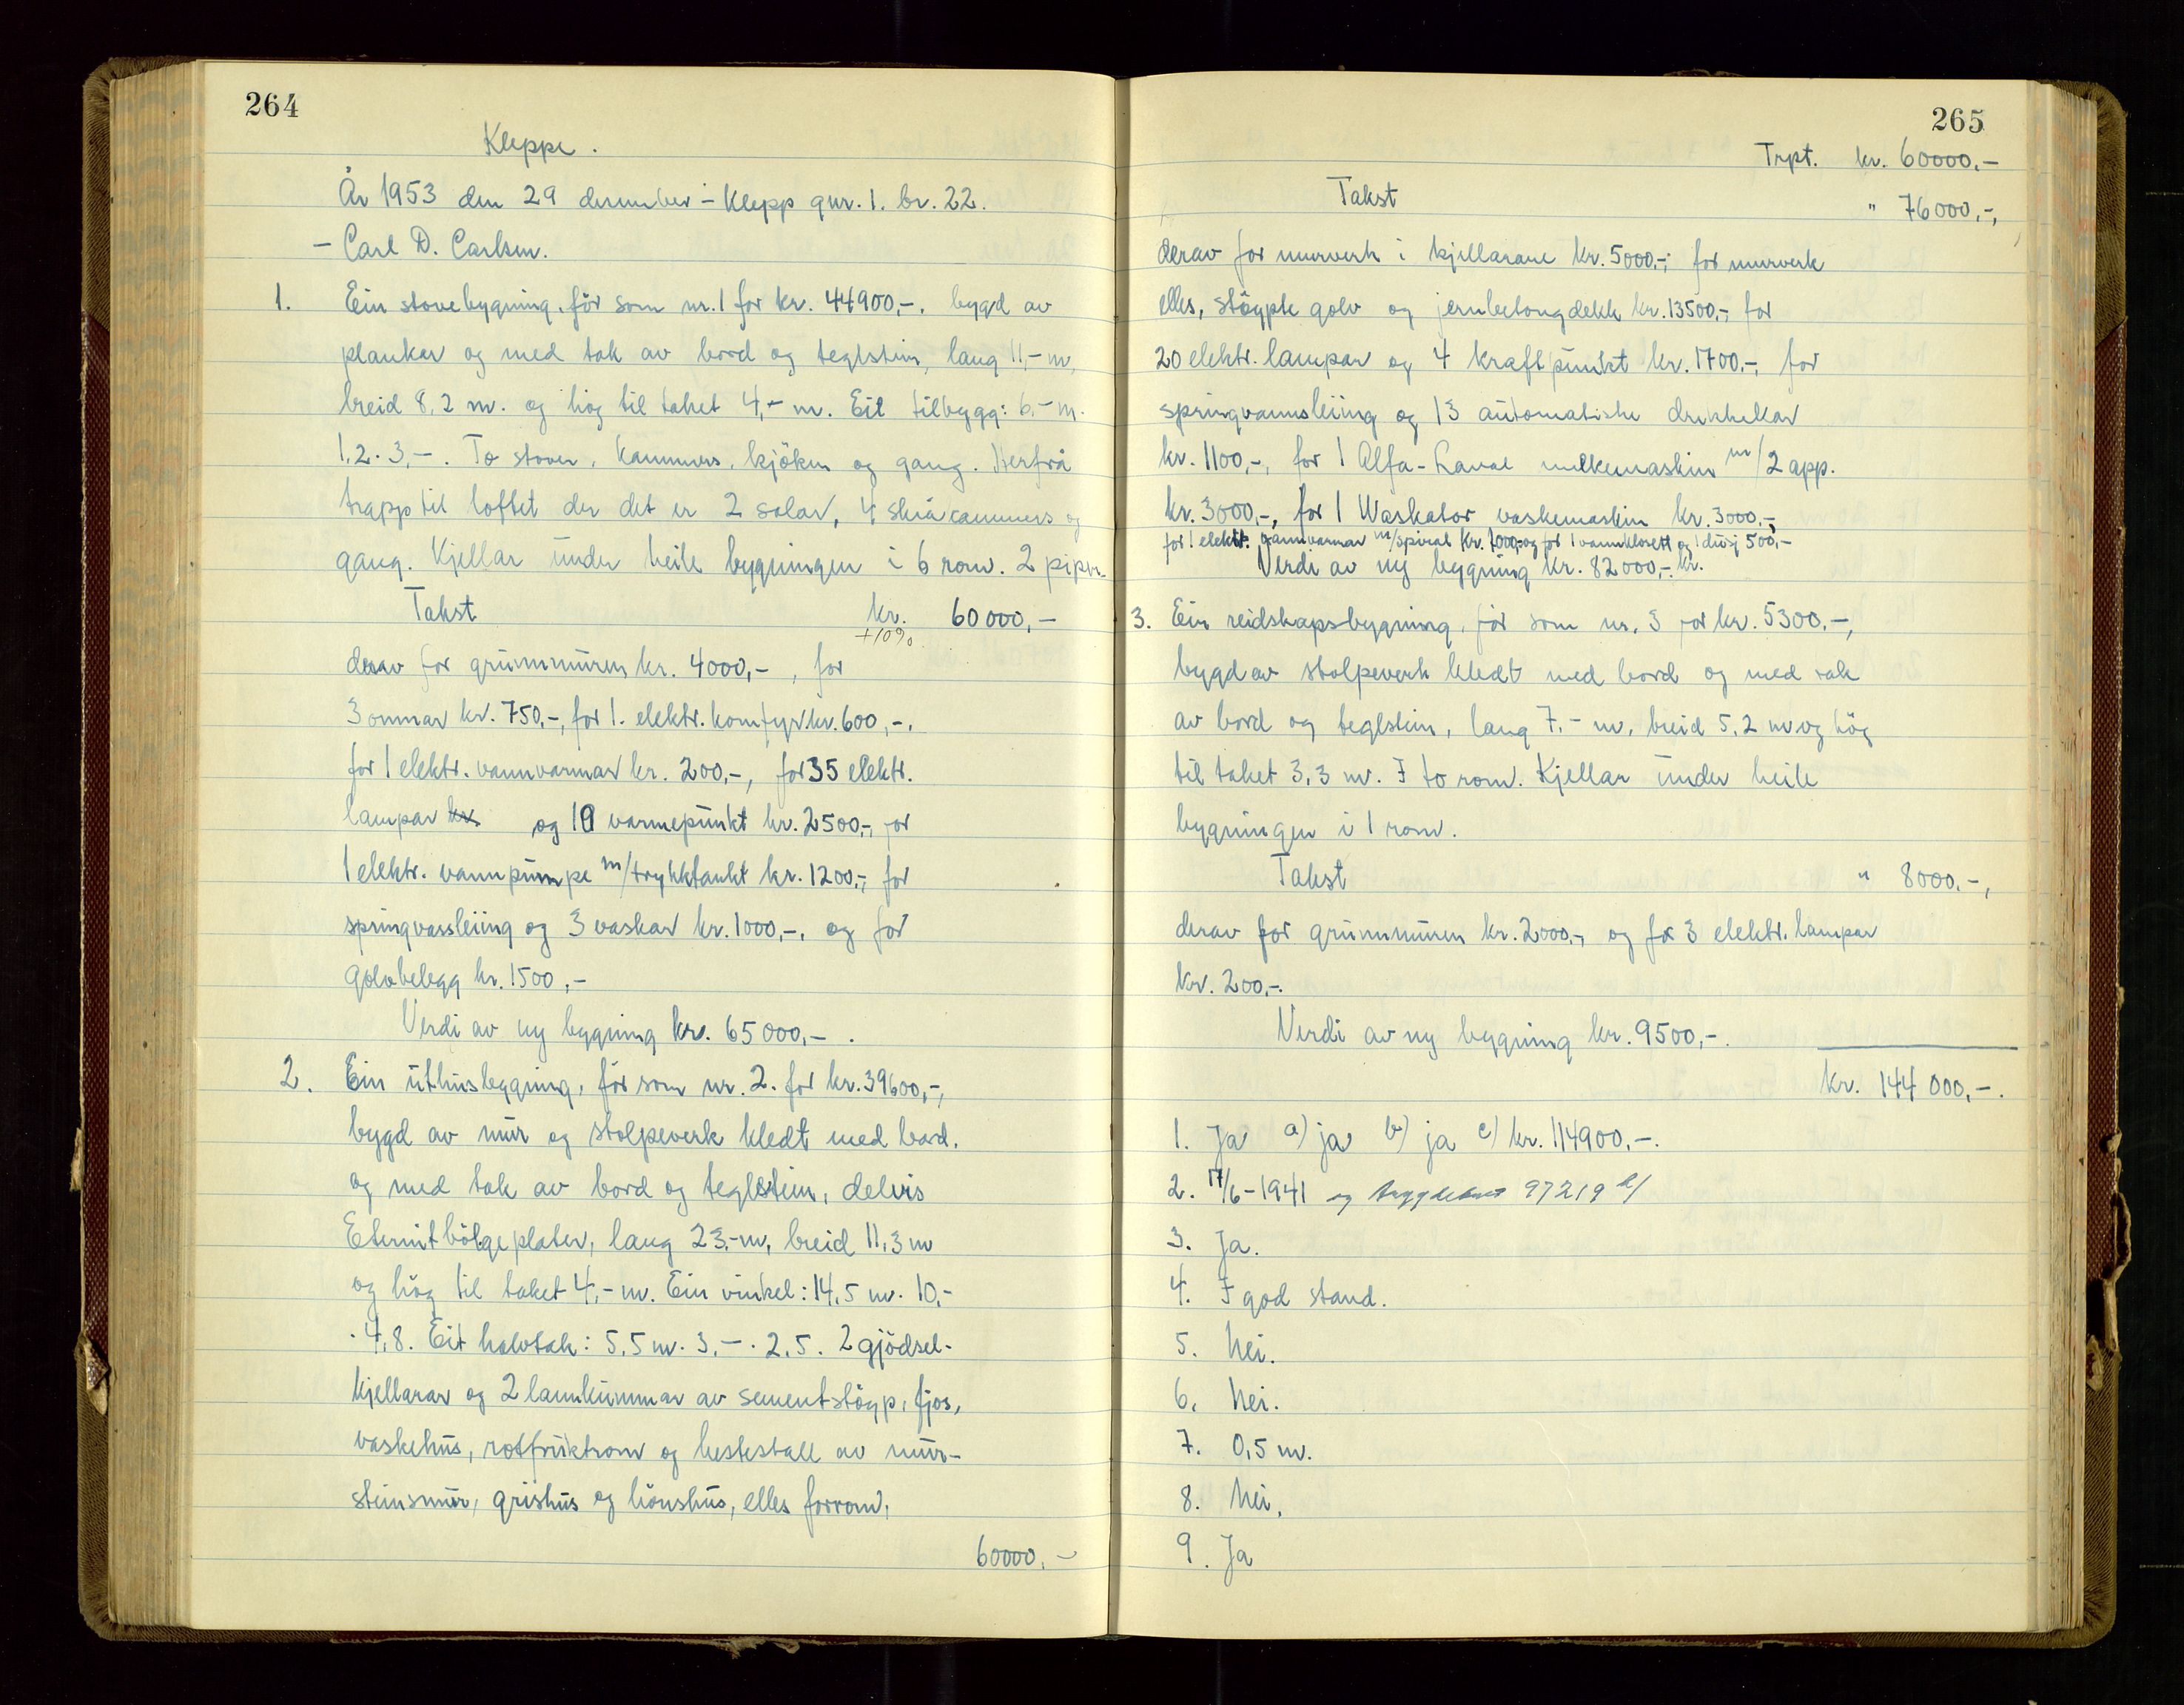 264
Kleppe.
År 1953 den 29 desember - Klepp gnr. 1. br. 22.
- Carl D. Carlsen.
1. Ein stovebygning, før som nr. 1 for kr. 44900,-. bygd av
plankar og med tak av bord og teglstein, lang 11,- m,
breid 8,2 m. og høg til taket 4,- m. Eit tilbygg: 6,- m.
1,2 · 3,-. To stover, kammers, kjøken og gang. Herfrå
trapp til loftet der det er 2 salar, 4 skråkammers og
gang. Kjellar under heile bygningen i 6 rom. 2 piper.
Takst kr. 60000,-
+10%
derav for grunnmuren kr. 4000,-, for
3 omnar kr. 750,-, for 1. elektr. komfyr kr. 600,-,
for 1 elektr. vannvarmar kr. 200,-, for 35 elektr.
lampar kr. og 10 varmepunkt kr. 2500,-, for
1 elektr. vannpumpe m/trykktankt kr. 1200,-, for
springvassleiing og 3 vaskar kr. 1000,-, og for
golvbelegg kr. 1500,-
Verdi av ny bygning kr. 65000,-.
2. Ein uthusbygning, før som nr. 2. for kr. 39600,-,
bygd av mur og stolpeverk kledt med bord,
og med tak av bord og teglstein, delvis
Eternitbølgeplater, lang 23,- m, breid 11,3 m
og høg til taket 4,- m. Ein vinkel: 14,5 m · 10,-
· 4,8. Eit halvtak: 5,5 m · 3,- · 2,5. 2 gjødsel-
kjellarar og 2 lannkummar av sementstøyp, fjos,
vaskehus, rotfruktrom og hestestall av mur-
steinsmur, grishus og hønshus, elles forrom,
60000,-
265
Trpt. kr. 60000,-
Takst " 76000,-,
derav for murverk i kjellarane kr. 5000,-, for murverk
elles, støypte golv og jernbetongdekk kr. 13500,- for
20 elektr. lampar og 4 kraftpunkt kr. 1700,-, for
springvannsleiing og 13 automatiske drikkekar
kr. 1100,-, for 1 Alfa-Laval melkemaskin m/2 app.
kr. 3000,-, for 1 Waskator vaskemaskin kr. 3000,-,
for 1 elektr. vannvarmar m/spiral kr. 1000 og for 1 vannklosett og 1 dusj 500,-
Verdi av ny bygning kr. 82000,-. kr.
3. Ein reidskapsbygning, før som nr. 3 for kr. 5300,-,
bygd av stolpeverk kledt med bord og med tak
av bord og teglstein, lang 7,- m, breid 5,2 m og høg
til taket 3,3 m. I to rom. Kjellar under heile
bygningen i 1 rom.
Takst " 8000,-,
derav for grunnmuren kr. 2000,-, og for 3 elektr. lampar
kr. 200,-.
Verdi av ny bygning kr. 9500,-.
kr. 144 000,-.
1. Ja a) ja b) ja c) kr. 114900,-.
2. 17/6-1941 og 97219
3. Ja.
4. I god stand.
5. Nei.
6. Nei.
7. 0,5 m.
8. Nei.
9. Ja